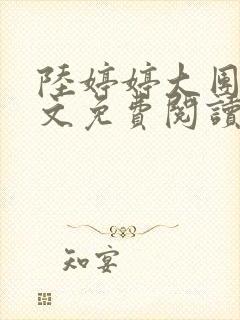 陸婷婷大團
文免費閱讀
知宴